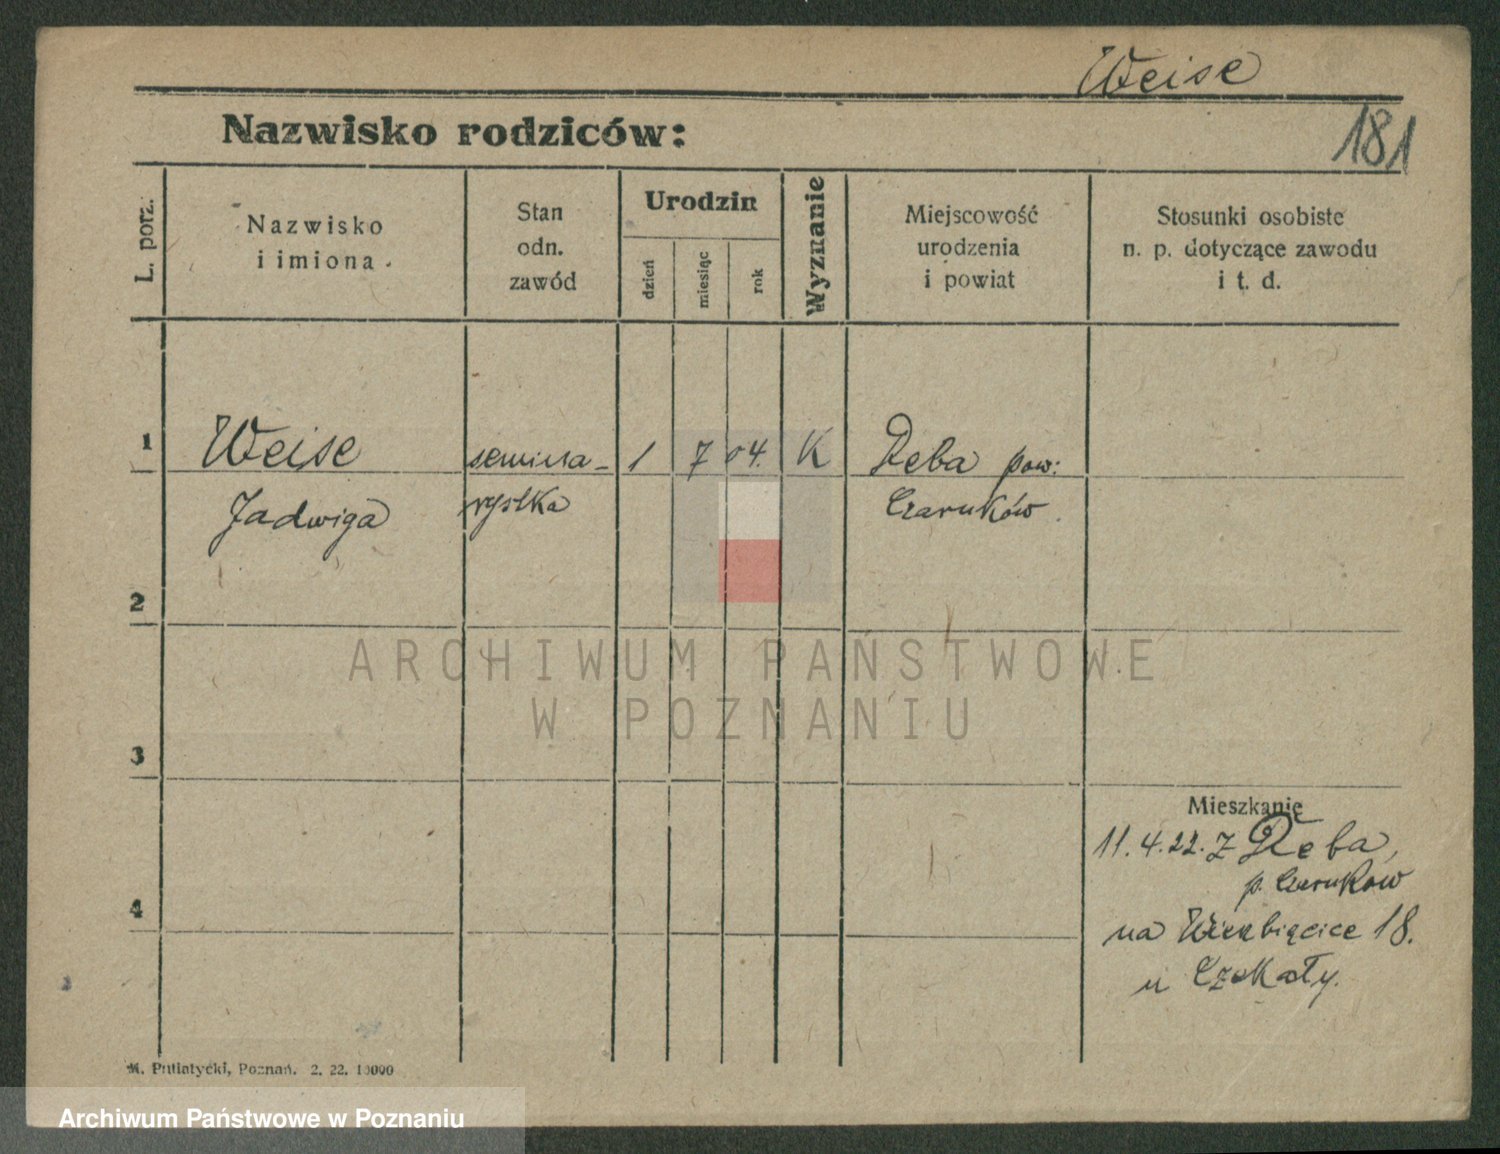 Weise
Nazwisko rodziców:
181
L. porz.
Nazwisko
i imiona.
Stan
odn.
zawód
Urodzin
dzień
miesiąc
rok
Wyznanie
Miejscowość
urodzenia
i powiat
Stosunki osobiste
n. p. dotyczące zawodu
i t. d.
1
Weise
semina-
1
7
04.
K
Dęba pow:
Jadwiga
rystka
Czarnków.
2
3
4
Mieszkanie
11.4.22. z Dęba,
p. Czarnków
na Wierbięcice 18.
u Czekały.
M. Putiatycki, Poznań. 2. 22. 10000
ARCHIWUM PAŃSTWOWE
W POZNANIU
Archiwum Państwowe w Poznaniu